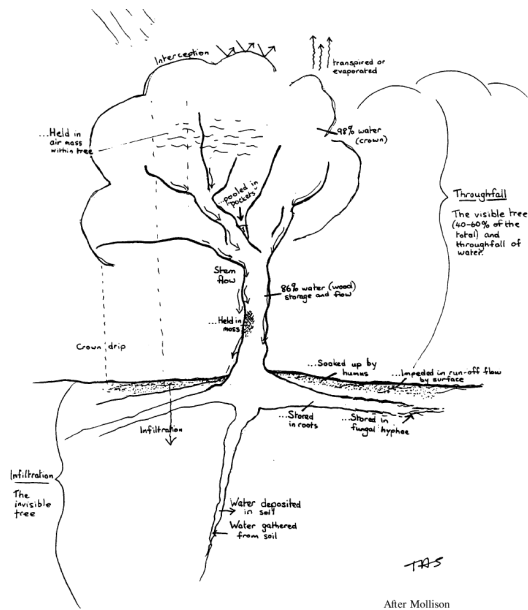 Interception
transpired or
evaporated
...Held in
air mass
within tree
98% water
(crown)
...pooled in
"pockets"
Throughfall
The visible tree
(40-60% of the
total) and
throughfall of
water.
Stem
flow
86% water (wood)
storage and flow
...Held in
moss
Crown drip
...Soaked up by
humus
...Impeded in run-off flow
by surface
Infiltration
...Stored
in roots
...Stored in
fungal hyphae
Infiltration
The
invisible
tree
Water deposited
in soil
Water gathered
from soil
TAS
After Mollison